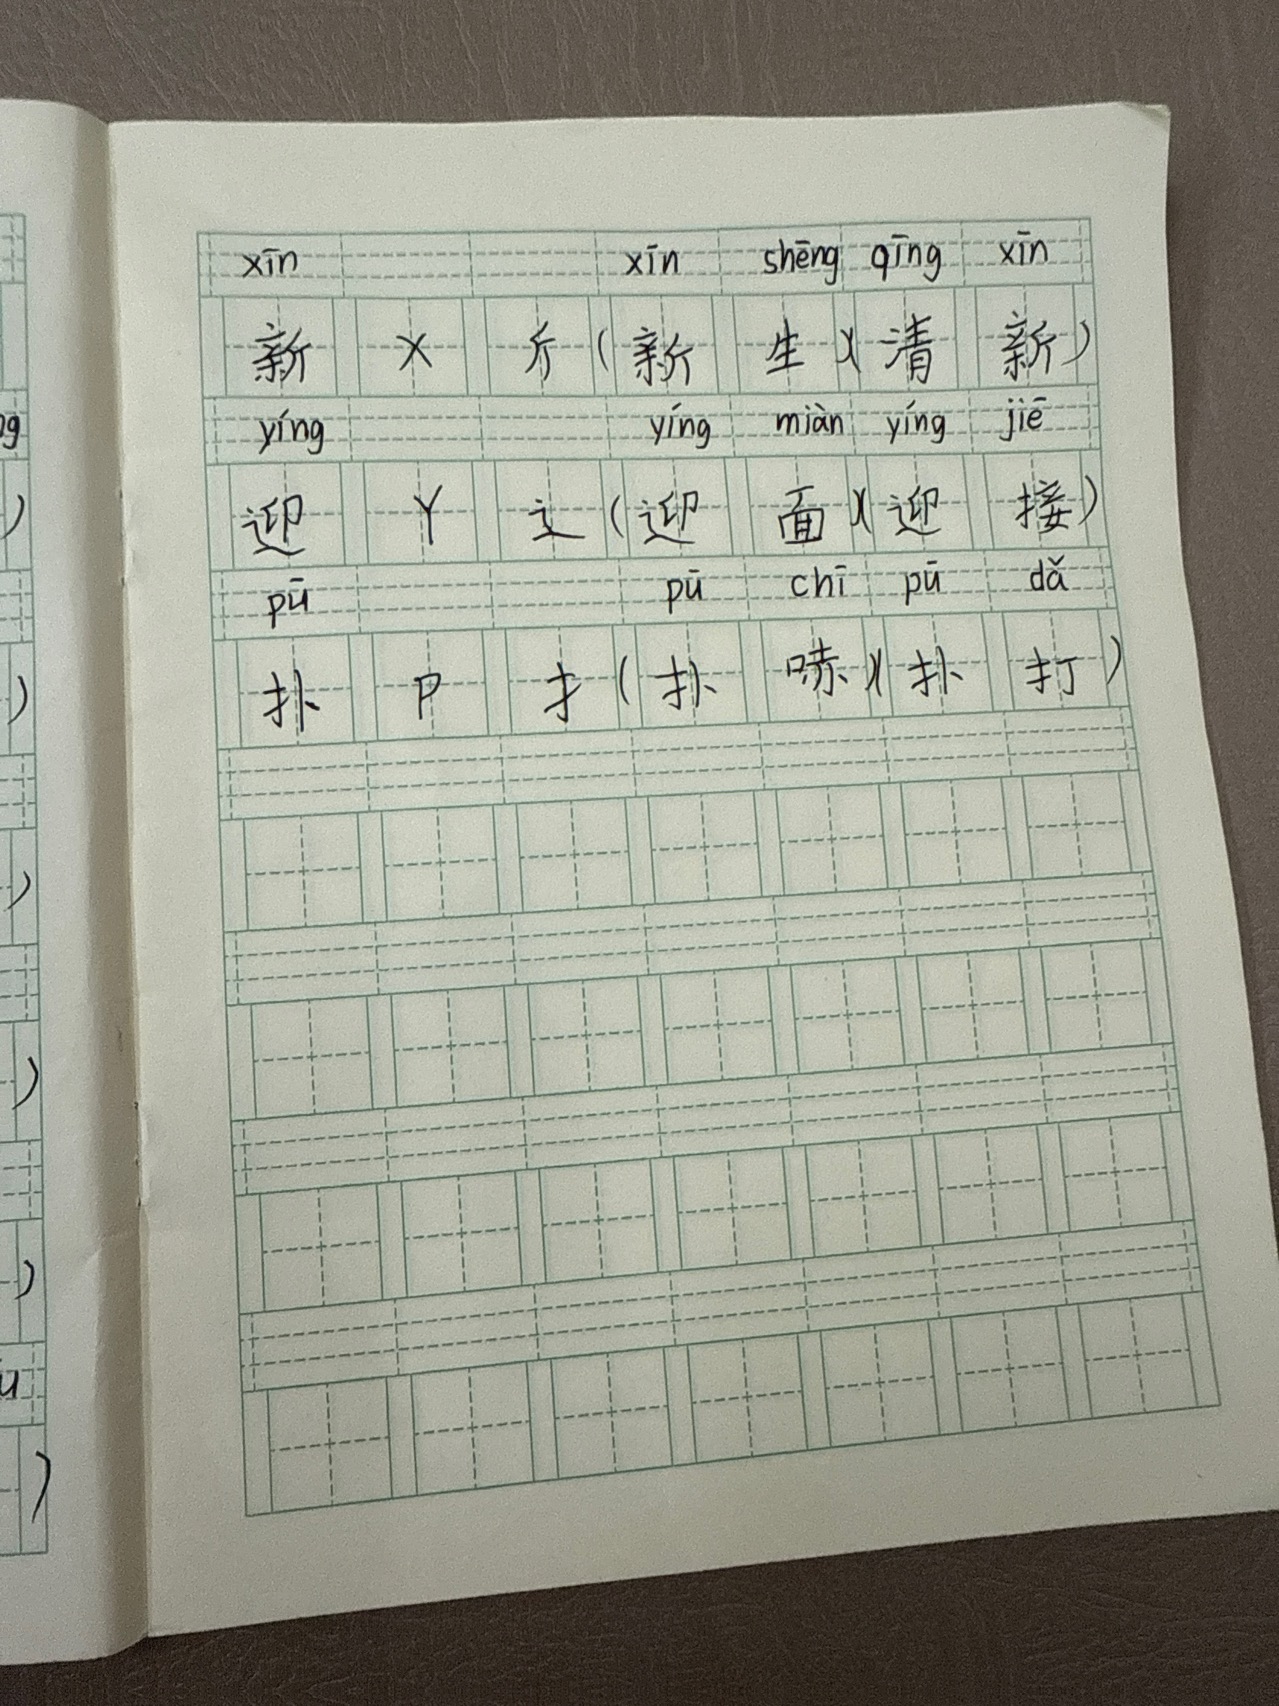 xīn xīn shēng qīng xīn
新 X 斤 (新 生)(清 新)
yíng yíng miàn yíng jiē
迎 Y 辶 (迎 面)(迎 接)
pū pū chī pū dǎ
扑 P 扌 (扑 哧)(扑 打)
ng
)
)
)
)
)
u
)